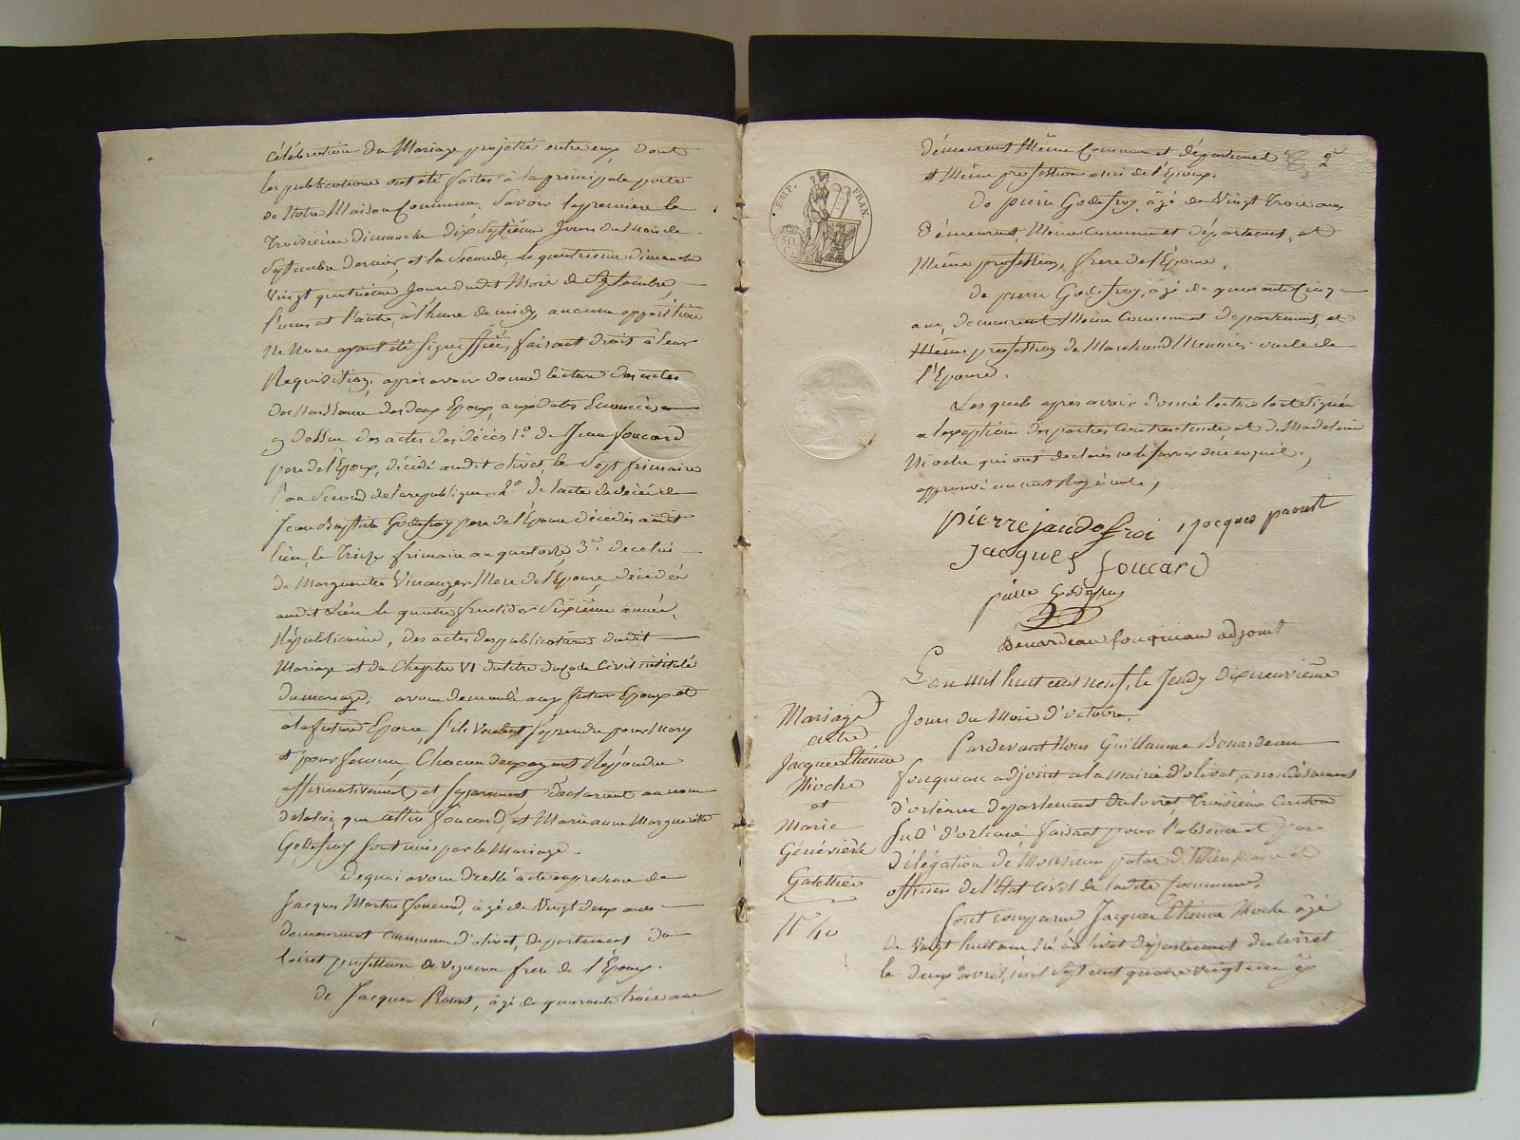 célébration du Mariage projetté entre eux dont
les publications ont été faites à la principale porte
de Notre Maison Commune, Savoir la première le
Troisième dimanche dixseptième Jours du Mois de
Septembre dernier, et la Seconde, le quatrième dimanche
Vingt quatrième Jours dudit Mois de Septembre,
l'une et l'autre, à l'heure de midy, aucune opposition
Ne Nous ayant été Signiffiée, faisant droit à leur
Requisition, après avoir donné lecture des actes
de Naissance des deux Epoux, aux dates Enoncées
cy dessus des actes des décès 1º de Jean foucard
pere de l'Epoux, décédé audit olivet, le Sept frimaire
l'an Second de la republique, 2º de l'acte de décès de
Jean Baptiste Godefroy pere de l'Epouse décédés audit
lieu, le Treize frimaire an quatorze, 3º de celui
de Marguerite Mere de l'Epouse, décédée
audit Lieu le quatre fructidor Sixième année
Républicaine, des actes des publications dudit
Mariage et du Chapitre VI du titre du Code Civil intitulé
du mariage, avons demandé aux futur Epoux et
a la future Epouse, s'ils veulent se prendre pour Mary
et pour femme, Chacun d'eux ayant Répondu
affirmativement, et Séparément Déclarent au nom
de la loi, que foucard, et Marie anne Marguerite
Godefroy sont unis par le Mariage.
De quoi avons dressé acte en présence de
Jacques foucard, âgé de Vingt deux ans
demeurant commune d'olivet, département du
loiret profession de Vigneron frere de l'Epoux.
de Jacques âgé de quarante trois ans
EMP. FRAN
demeurant Même Commune et département 2
et Même profession de l'Epoux.
De pierre Godefroy, âgé de Vingt Trois ans
Demeurant, Même Commune et département, et
Même profession, frere de l'Epouse,
de pierre Godefroy, âgé de quarante Cinq
ans, demeurant Même Commune et département, et
profession de Marchand Meunier oncle de
l'Epouse.
Les quels apres avoir donné lecture ont Signé
a l'exception des parties Contractantes, et de Madeleine
qui ont déclaré ne Savoir
approuvé un mot Rayé nul,
pierre jaudefroi jacques
Jacques foucard
pierre Godefroy
Benardeau fouqueau adjoint
L'an mil huit cent neuf, le Jeudy dix neuvième
Jours du Mois d'octobre,
Mariage
entre
Jacques Etienne
Mioche
et
Marie
Généviève
Galellier
Pardevant Nous Guillaume Benardeau
fouqueau adjoint a la Mairie d'olivet, arrondissement
d'orleans departement du loiret, Troisième Canton
Sud d'orleans faisant pour l'absence et par
délégation de Monsieur Maire et
officier de l'Etat civil de ladite Commune,
Sont comparus Jacques Etienne Mioche âgé
de Vingt huit ans né à olivet département du loiret
le deux avril, mil sept cent quatre vingt un